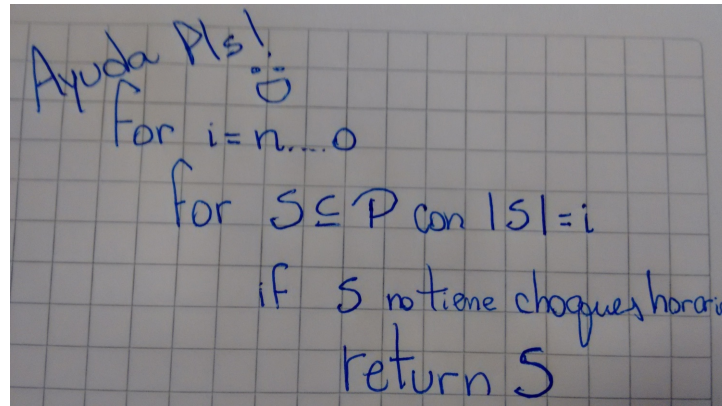 Ayuda Pls!
for i=n....0
for S⊆P con |S|=i
if S no tiene choques horari
return S